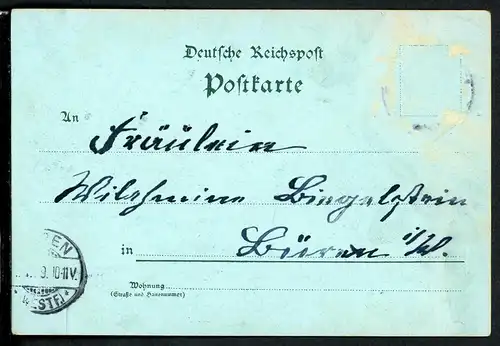 Deutsche Reichspost
Postkarte
An
Fräulein
Wilhelmine Biegelstein
in Büren i/W.
Wohnung
(Straße und Hausnummer)
REN
9. 10-11V.
(WESTF.)